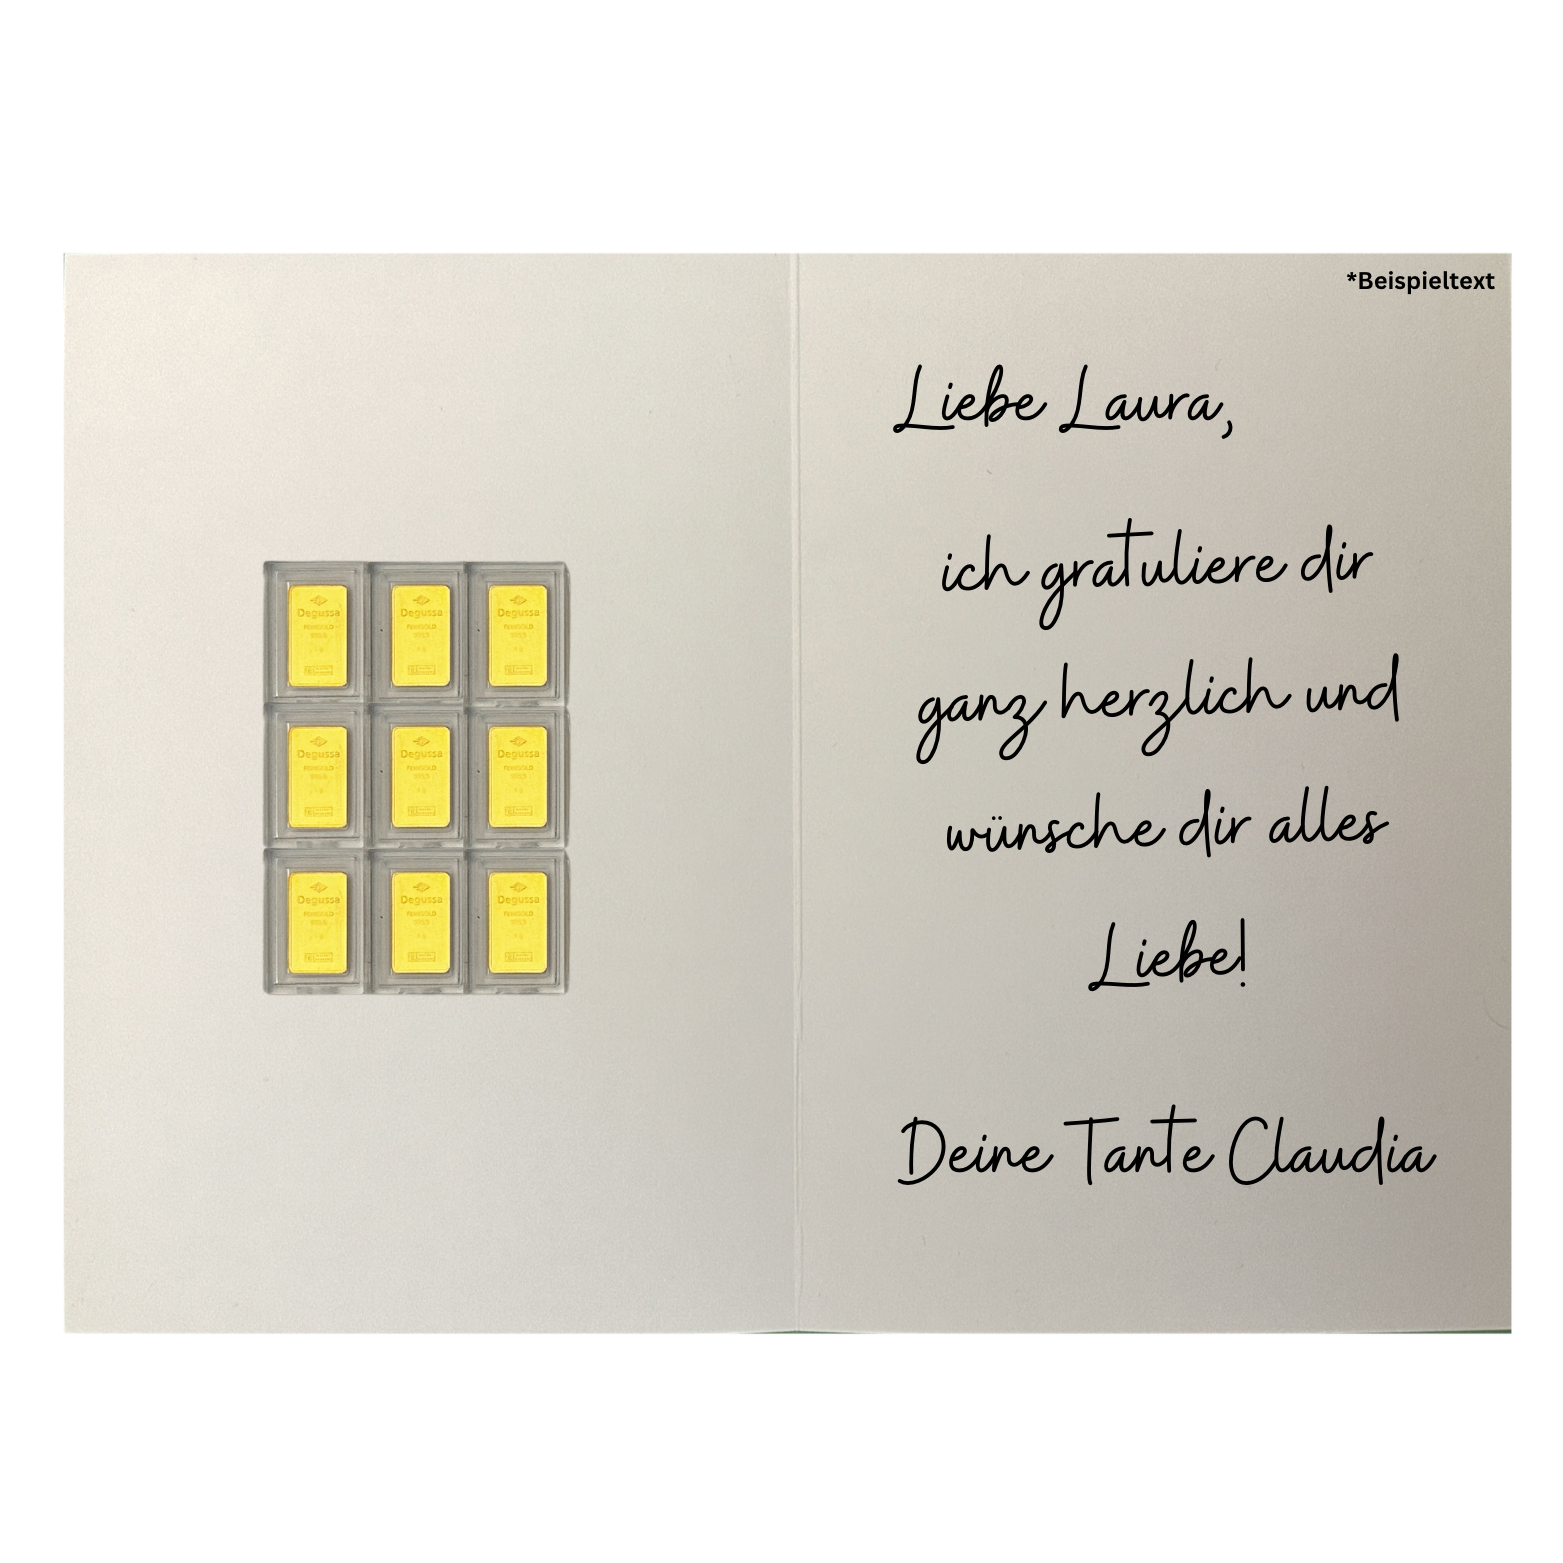 *Beispieltext
Liebe Laura,
ich gratuliere dir
ganz herzlich und
wünsche dir alles
Liebe!
Deine Tante Claudia
Degussa Degussa Degussa
FEINGOLD FEINGOLD FEINGOLD
999,9 999,9 999,9
Degussa Degussa Degussa
FEINGOLD FEINGOLD FEINGOLD
999,9 999,9 999,9
Degussa Degussa Degussa
FEINGOLD FEINGOLD FEINGOLD
999,9 999,9 999,9